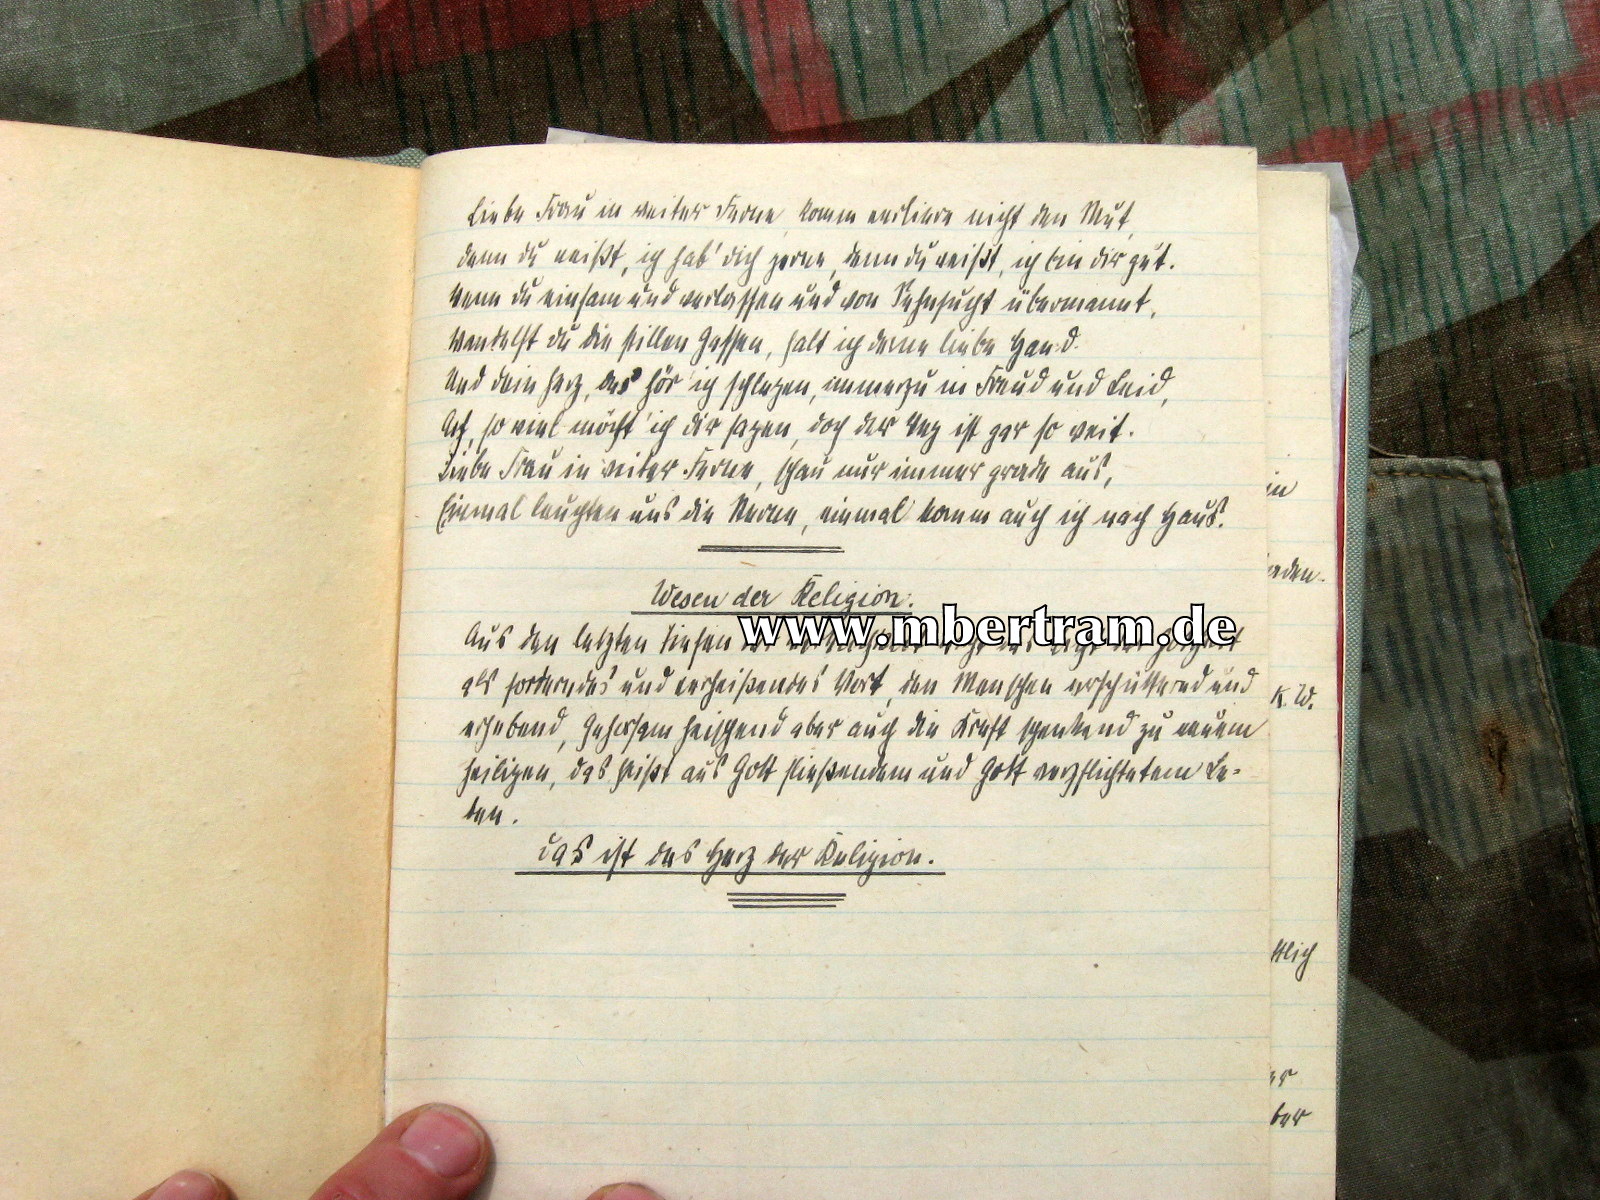 Liebe Frau in weiter Ferne, komm verliere nicht den Mut,
denn du weißt, ich hab' dich gerne, denn du weißt, ich bin dir gut.
Wenn du einsam und verlassen und von Sehnsucht übermannt,
Wandelst du die stillen Gassen, halt ich deine liebe Hand.
Und dein Herz, das hör' ich schlagen, immerzu in Freud und Leid,
Ach, so viel möcht' ich dir sagen, doch der Weg ist gar so weit.
Liebe Frau in weiter Ferne, schau nur immer grade aus,
Einmal leuchten uns die Sterne, einmal komm auch ich nach Haus.
Wesen der Religion.
www.mbertram.de
Aus den letzten Tiefen
als forderndes und verheißendes Wort, den Menschen erschütternd und
erhebend, Gehorsam heischend aber auch die Kraft spendend zu neuem
heiligen, das heißt aus Gott fließendem und Gott verpflichtetem Le-
ben.
Das ist das Herz der Religion.
in
eden.
K. W.
tlich
er
ber